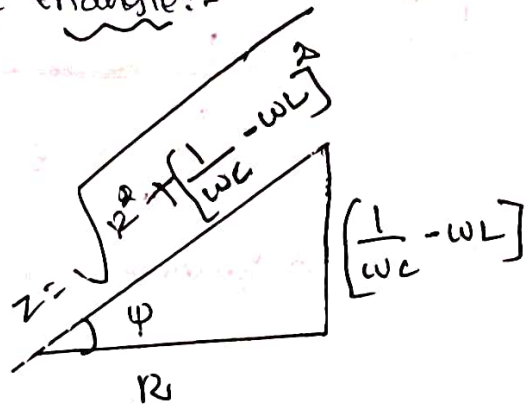 triangle:-
Z = √R² + [1/ωC - ωL]²
[1/ωC - ωL]
φ
R